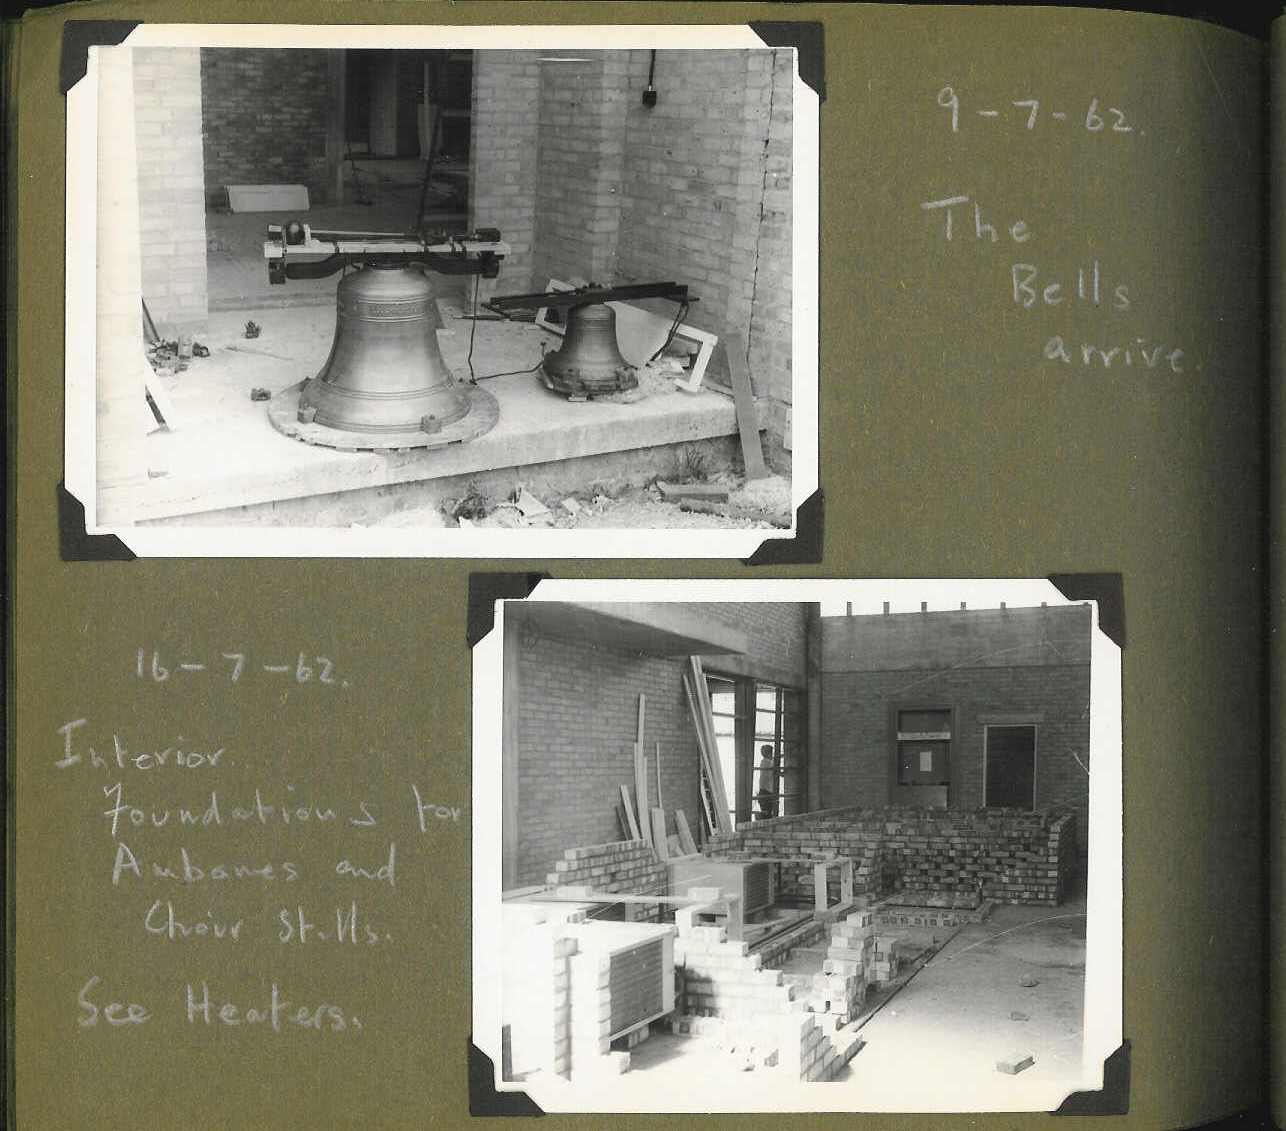 9-7-62.
The
Bells
arrive.
16-7-62.
Interior.
Foundations for
Ambones and
Choir Stalls.
See Heaters.